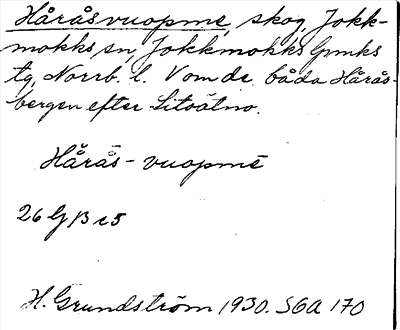 Håråsvuopmē, skog, Jokk-
mokks sn, Jokkmokks lpmks
tg, Norrb. l. V om de båda Hårås-
bergen efter Sitoätno.
Hårås- vuopmē
26 G β c 5
H. Grundström 1930. SGA 170